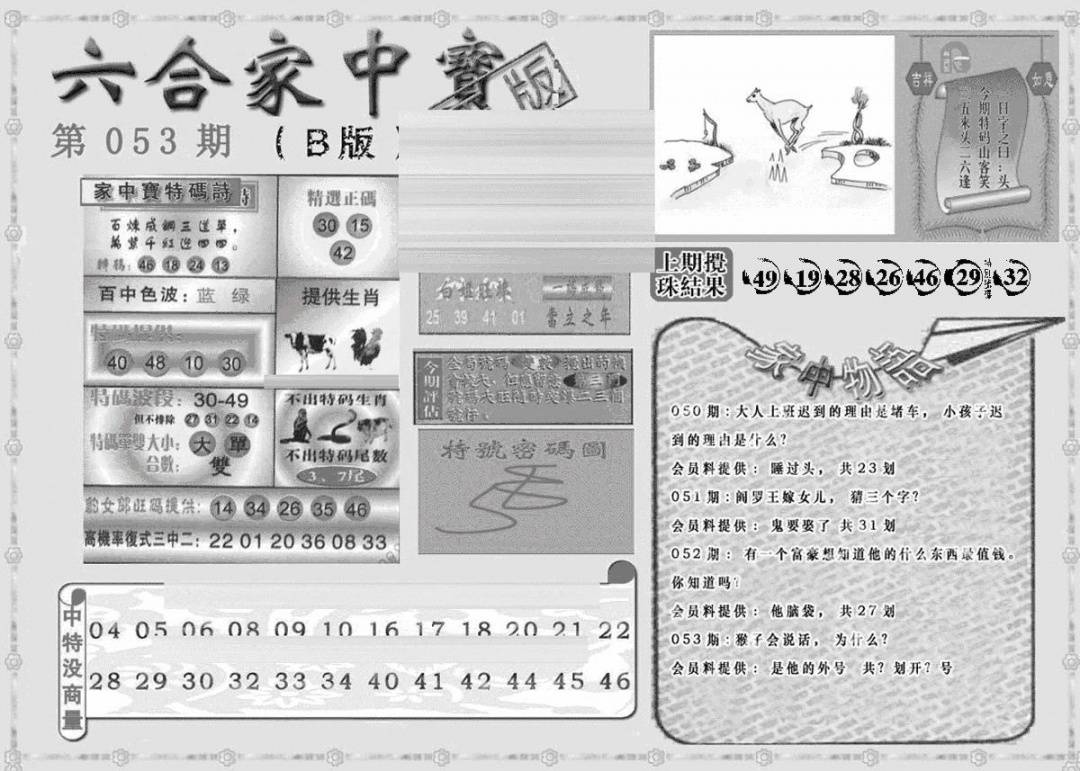 六合家中寶
版
第053期 (B版)
家中寶特碼詩
百煉成鋼三道單，
萬紫千紅迎四四。
46 18 24 13
精選正碼
30 15
42
百中色波：蓝 绿
提供生肖
特碼提供：
40 48 10 30
特碼波段：30-49
但不排除 27 31 22 14
特碼單雙大小：大 單
合數：雙
不出特码生肖
不出特码尾數
3、7尾
豹女郎旺码提供：14 34 26 35 46
高機率復式三中二：22 01 20 36 08 33
25 39 41 01
當立之年
今期評估
特號密碼圖
吉祥
如意
一日字之曰：头
今期特码山客笑
五来头二六逢
上期攪珠結果
49 19 28 26 46 29 特别號碼 32
家中物語
050期：大人上班迟到的理由是堵车， 小孩子迟
到的理由是什么？
会员料提供： 睡过头， 共23划
051期：阎罗王嫁女儿， 猜三个字？
会员料提供： 鬼要娶了 共31划
052期： 有一个富豪想知道他的什么东西最值钱。
你知道吗？
会员料提供： 他脑袋， 共27划
053期：猴子会说话， 为什么？
会员料提供： 是他的外号 共？划开？号
中特没商量
04 05 06 08 09 10 16 17 18 20 21 22
28 29 30 32 33 34 40 41 42 44 45 46